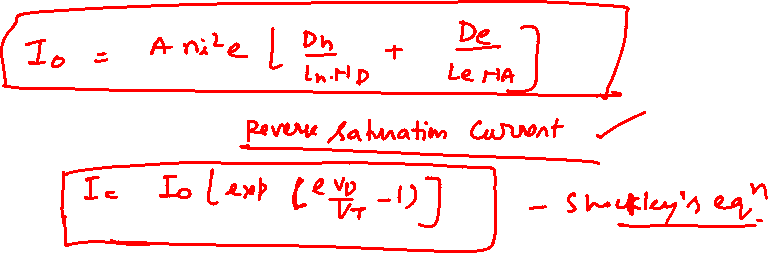 I₀ = A nᵢ² e [ Dh/(Lh.ND) + De/(Le NA) ]
Reverse Saturation Current ✓
I = I₀ [ exp ( e VD/VT - 1) ] - Shockley's eqⁿ.